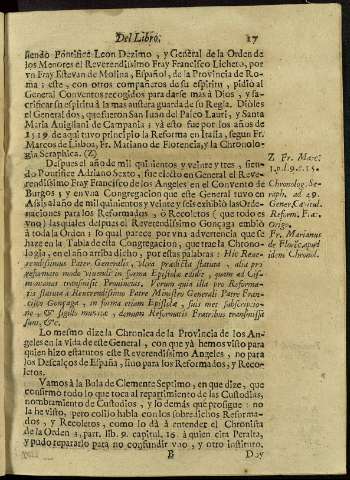 Del Libro. 17
siendo Pontifice Leon Dezimo, y General de la Orden de
los Menores el Reverendissimo Fray Francisco Licheto, por
vn Fray Estevan de Molina, Español, de la Provincia de Ro-
ma; este, con otros compañeros de su espiritu, pidiò al
General Conventos recogidos para darse mas à Dios, y sa-
crificar su espiritu à la mas austera guarda de su Regla. Diòles
el General dos, que fueron San Juan del Palco Lauri, y Santa
Maria de Campania: và esto fue por los años de
1519 de aqui tuvo principio la Reforma en Italia, segun Fr.
Marcos de Lisboa, Fr. Mariano de Florencia, y la Chronolo-
gia Seraphica. (Z)
Despues el año de mil quinientos y veinte y tres, sien-
do Pontifice Adriano Sexto, fue electo en General el Reve-
rendissimo Fray Francisco de los Angeles en el Convento de
Burgos; y en vna Congregacion que este General tuvo en
Assis al año de mil quinientos y veinte y seis exhibiò las Orde-
naciones para los Reformados, ò Recoletos (que todo es
vno) las quales despues el Reverendissimo Gonzaga embiò
à toda la Orden: lo qual parece por vna advertencia que se
haze en la Tabla de esta Congregacion, que trae la Chrono-
logia, en el año arriba dicho, por estas palabras: Hic Reve-
rendissimus Pater Generalis, prædicta statuta, alia pro
reformato modo vivendi in forma Epistolæ edidit, quem ad Cis-
montanas transmisit Provincias. Verum quia illa pro Reforma-
tis statuta à Reverendissimo Patre Ministro Generali Patre Fran-
cisco Gonzaga, in forma etiam Epistolæ, suis met subscriptio-
ne, & sigillo munita, denuò Reformatis Fratribus transmissa
sunt, &c.
Lo mesmo dize la Chronica de la Provincia de los An-
geles en la vida de este General, con que yà hemos visto para
quien hizo estatutos este Reverendissimo Angeles, no para
los Descalços de España, sino para los Reformados, y Reco-
letos.
Vamos à la Bula de Clemente Septimo, en que dize, que
confirmò todo lo que toca al repartimiento de las Custodias,
nombramiento de Custodios, y lo demàs que prosigue: no
la he visto, pero colijo habla con los sobredichos Reforma-
dos, y Recoletos, como lo dà à entender el Chronista
de la Orden 3. part. lib. 9. capitul. 16. à quien cita Peralta,
y pudo repararlo para no confundir vno, y otro instituto.
B Doy
Z Fr. Marc.
3. p. l. 9. c. 15.
Chronolog. Se-
raph. ad 29.
Gener. Capitul.
Reform. Frac.
Orig.
Fr. Marianus
de Flor. apud
idem Chronol.